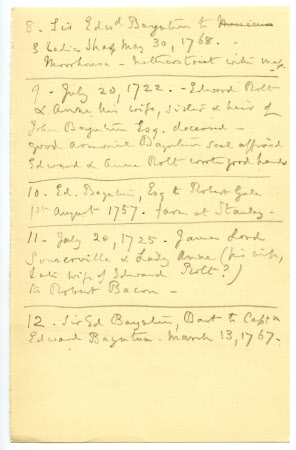 8. Sir Edwd Bayntun to
3 Ladies Shaf May 30, 1768.
Moorhouse - Nethercotstreet with map
9. July 20, 1722. - Edward Rolt
& Anne his wife, sister & heir of
John Bayntun Esq. deceased -
good armorial Bayntun seal affixed
Edward & Anne Rolt wrote good hands
10. Ed. Bayntun, Esq to Robert Gale
1st August 1757. farm at Stanley -
11. July 20, 1725. James Lord
Somerville & Lady Anne (his wife,
Late wife of Edward Rolt?)
to Robert Bacon -
12. Sir Ed Bayntun, Bart to Captn
Edward Bayntun. March 13, 1767.